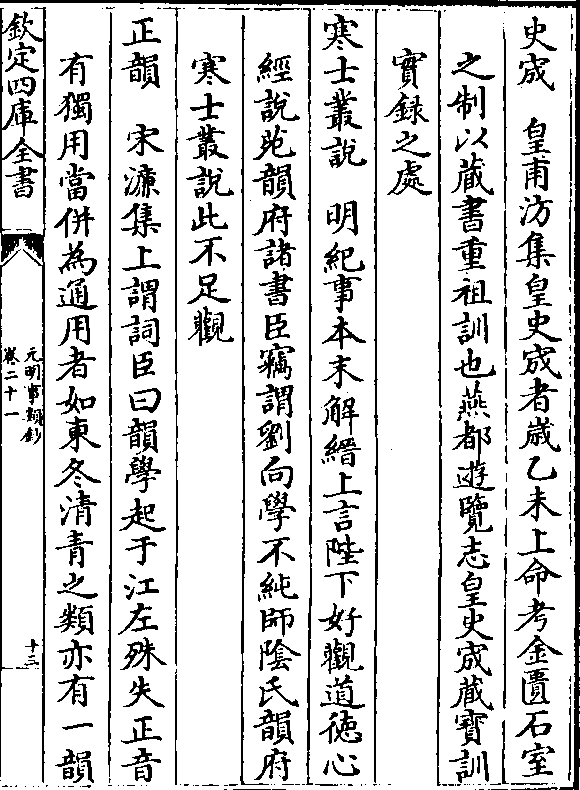 史宬　皇甫汸集皇史宬者歲乙未上命考金匱石室
之制以藏書重祖訓也燕都遊覽志皇史宬藏寶訓
實録之處
寒士叢說　明紀事本末解縉上言陛下好觀道徳心
經說苑韻府諸書臣竊謂劉向學不純師陰氏韻府
寒士叢說此不足觀
正韻　宋濂集上謂詞臣曰韻學起于江左殊失正音
有獨用當併為通用者如東冬清青之類亦有一韻
欽定四庫全書
元明事類鈔
卷二十一
十三